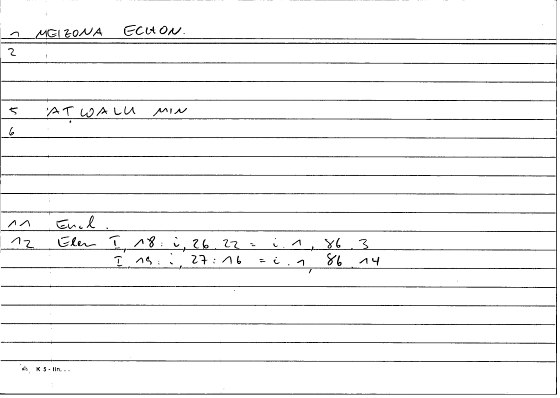 1 MEIZONA ECHON.
2
5 'AṬWALU MIN
6
11 Eucl.
12 Elem I, 18: i, 26.22 = i.1, 86.3
I, 19: i, 27:16 = i.1, 86.14
K 5 - lin...